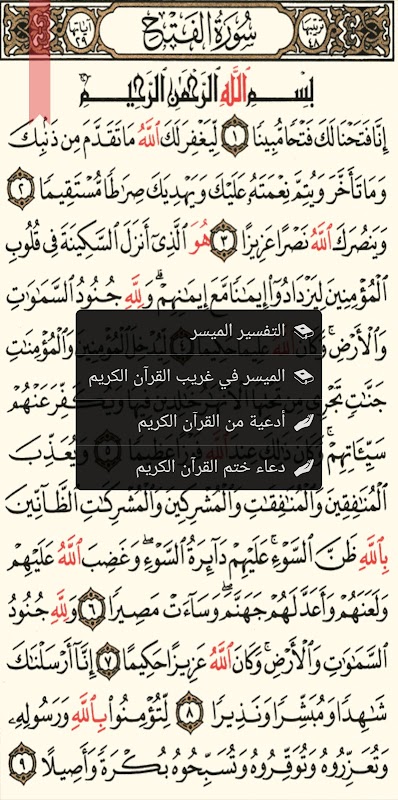 ترتيبها ٤٨
سُورَةُ الْفَتْحِ
آياتها ٢٩
بِسْمِ اللَّهِ الرَّحْمَٰنِ الرَّحِيمِ
إِنَّا فَتَحْنَا لَكَ فَتْحًا مُّبِينًا ١ لِّيَغْفِرَ لَكَ اللَّهُ مَا تَقَدَّمَ مِن ذَنۢبِكَ
وَمَا تَأَخَّرَ وَيُتِمَّ نِعْمَتَهُ عَلَيْكَ وَيَهْدِيَكَ صِرَٰطًا مُّسْتَقِيمًا ٢
وَيَنصُرَكَ اللَّهُ نَصْرًا عَزِيزًا ٣ هُوَ الَّذِي أَنزَلَ السَّكِينَةَ فِي قُلُوبِ
الْمُؤْمِنِينَ لِيَزْدَادُوا إِيمَٰنًا مَّعَ إِيمَٰنِهِمْ ۗ وَلِلَّهِ جُنُودُ السَّمَٰوَٰتِ
وَالْأَرْضِ ۚ وَكَانَ اللَّهُ عَلِيمًا حَكِيمًا ٤ لِّيُدْخِلَ الْمُؤْمِنِينَ وَالْمُؤْمِنَٰتِ
جَنَّٰتٍ تَجْرِي مِن تَحْتِهَا وَيُكَفِّرَ عَنْهُمْ
سَيِّـَٔاتِهِمْ ۚ وَكَانَ ذَٰلِكَ عِندَ اللَّهِ فَوْزًا عَظِيمًا ٥ وَيُعَذِّبَ
الْمُنَٰفِقِينَ وَالْمُنَٰفِقَٰتِ وَالْمُشْرِكِينَ وَالْمُشْرِكَٰتِ الظَّآنِّينَ
بِاللَّهِ ظَنَّ السَّوْءِ ۚ عَلَيْهِمْ دَآئِرَةُ السَّوْءِ ۖ وَغَضِبَ اللَّهُ عَلَيْهِمْ
وَلَعَنَهُمْ وَأَعَدَّ لَهُمْ جَهَنَّمَ ۖ وَسَآءَتْ مَصِيرًا ٦ وَلِلَّهِ جُنُودُ
السَّمَٰوَٰتِ وَالْأَرْضِ ۚ وَكَانَ اللَّهُ عَزِيزًا حَكِيمًا ٧ إِنَّآ أَرْسَلْنَٰكَ
شَٰهِدًا وَمُبَشِّرًا وَنَذِيرًا ٨ لِّتُؤْمِنُوا بِاللَّهِ وَرَسُولِهِ
وَتُعَزِّرُوهُ وَتُوَقِّرُوهُ وَتُسَبِّحُوهُ بُكْرَةً وَأَصِيلًا ٩
التفسير الميسر
الميسر في غريب القرآن الكريم
أدعية من القرآن الكريم
دعاء ختم القرآن الكريم